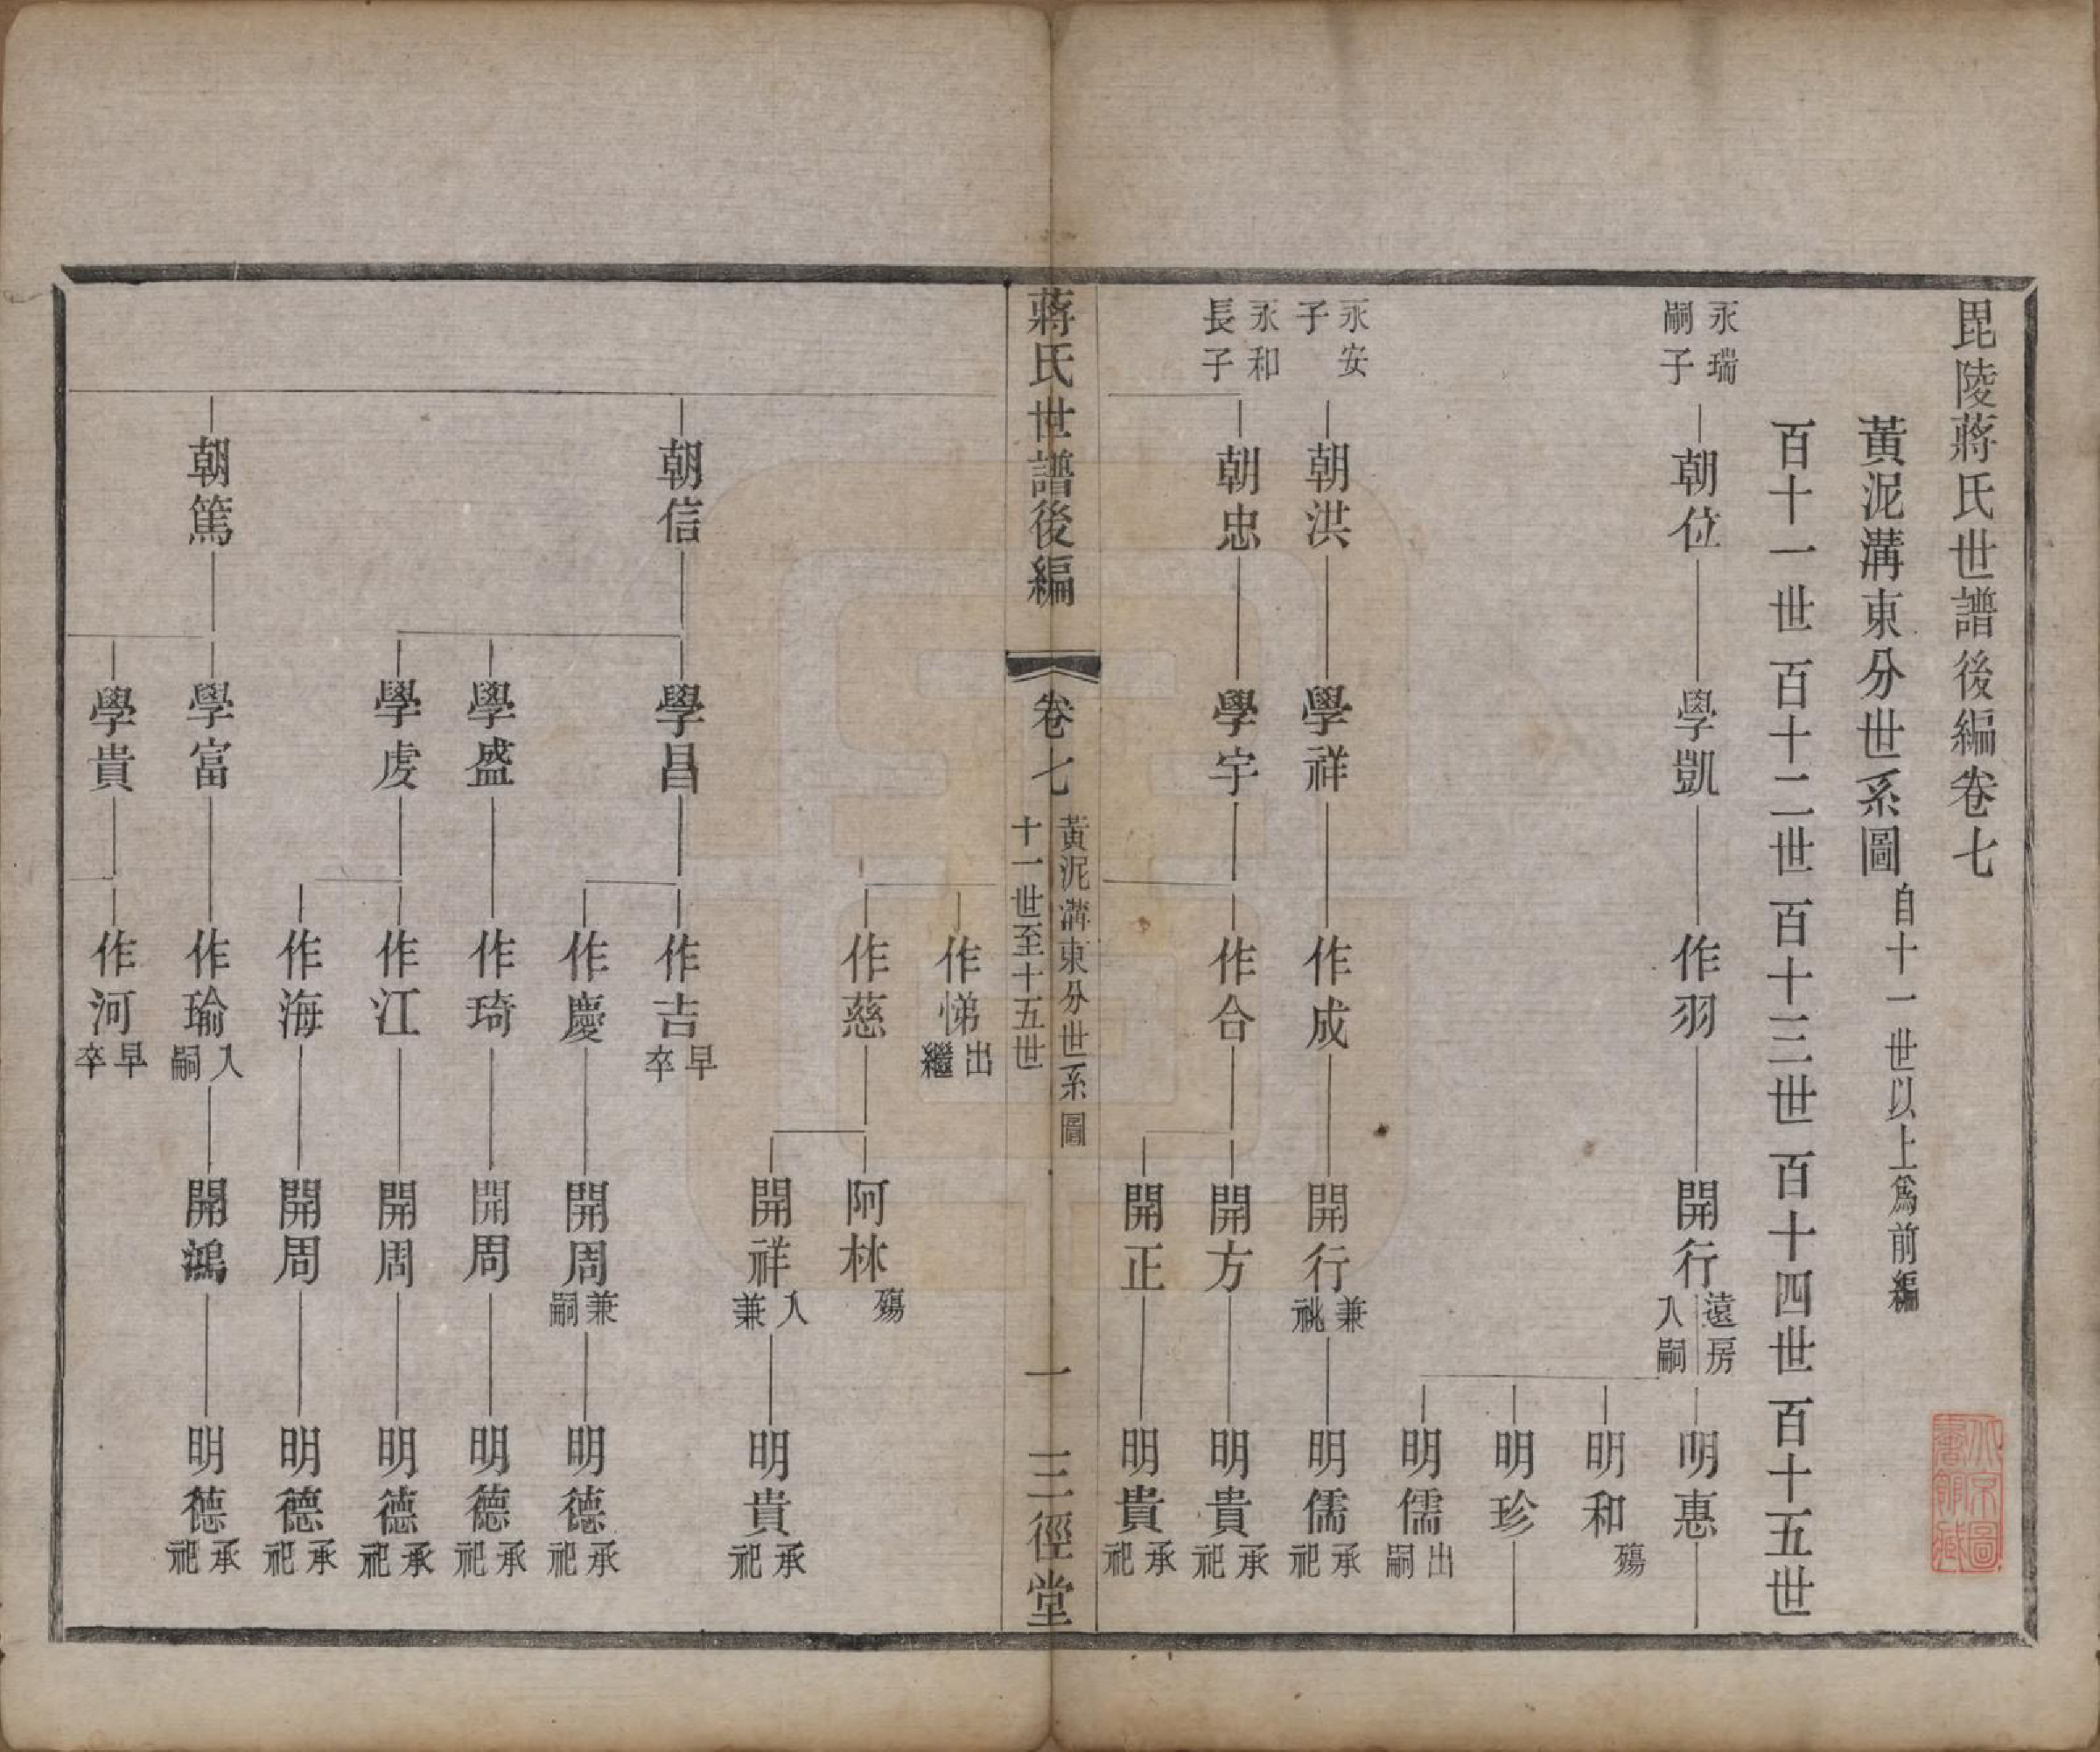 毘陵蔣氏世譜後編卷七
黃泥溝東分世系圖 自十一世以上爲前編
百十一世 百十二世 百十三世 百十四世 百十五世
永瑞嗣子 朝位 學凱 作羽 開行 遠房入嗣 明惠
明和 殤
明珍
明儒 出嗣
永安子 朝洪 學祥 作成 開行 兼祧 明儒 承祀
永和長子 朝忠 學宇 作合 開方 明貴 承祀
開正 明貴 承祀
蔣氏世譜後編 卷七 黃泥溝東分世系圖 十一世至十五世 一 三徑堂
作悌 出繼
作慈 阿林 殤
開祥 入兼 明貴 承祀
朝信 學昌 作吉 早卒
作慶 開周 兼嗣 明德 承祀
學盛 作琦 開周 明德 承祀
學虔 作江 開周 明德 承祀
作海 開周 明德 承祀
朝篤 學富 作瑜 入嗣 開鴻 明德 承祀
學貴 作河 早卒